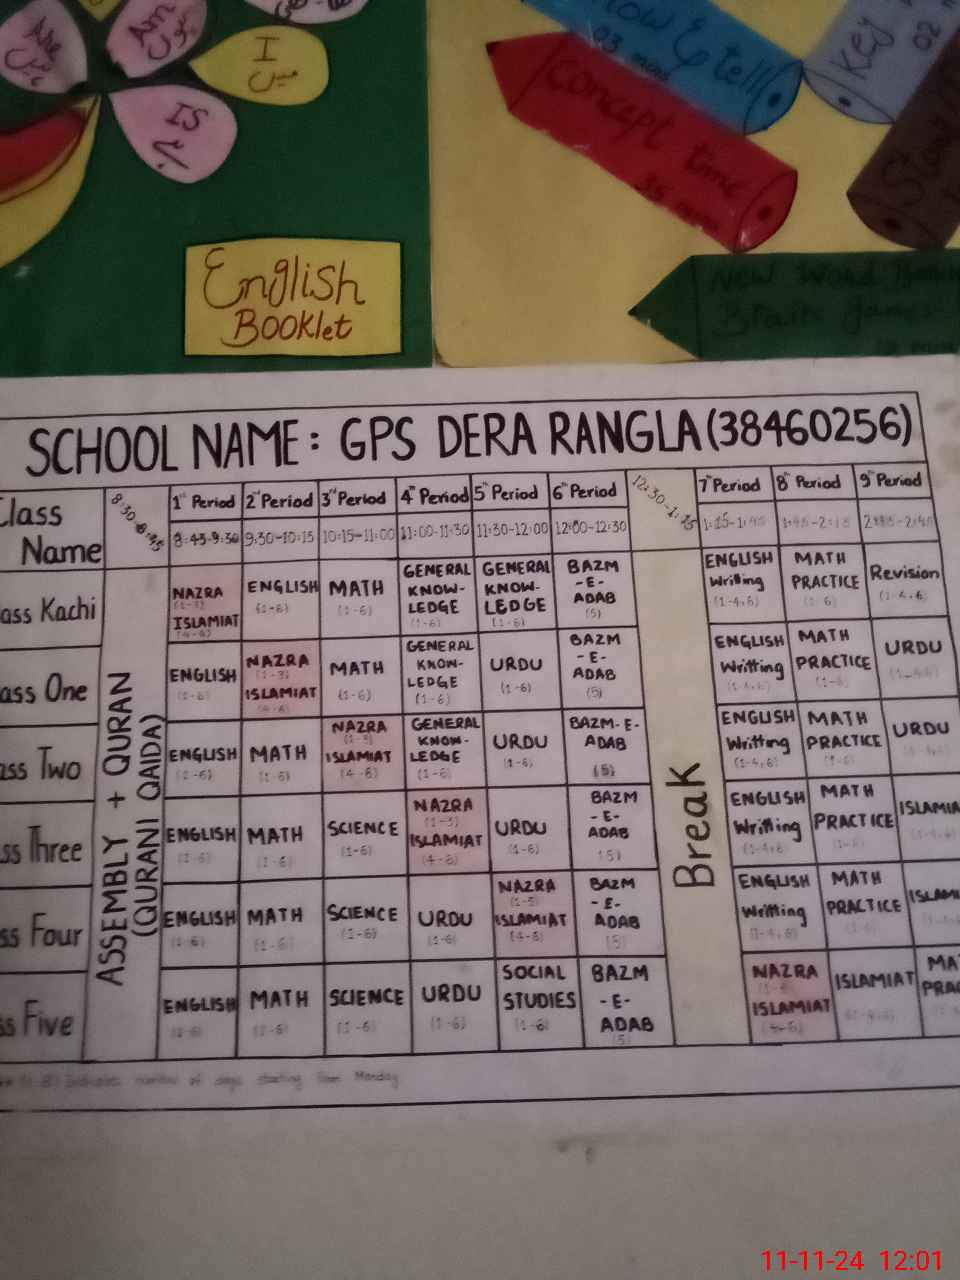 Are
Am
I
میں
IS
ہے
now & tell
03 mins
Key
02
Concept time
35 mins
New Word
Brain games
English
Booklet
SCHOOL NAME: GPS DERA RANGLA (38460256)
Class Name
8:30-8:45
1st Period 2nd Period 3rd Period 4th Period 5th Period 6th Period
12:30-1:15
7th Period 8th Period 9th Period
8:45-9:30 9:30-10:15 10:15-11:00 11:00-11:30 11:30-12:00 12:00-12:30 1:15-1:45 1:45-2:15 2:15-2:45
ASSEMBLY + QURAN
(QURANI QAIDA)
Break
ass Kachi
NAZRA (1-3) ISLAMIAT (4-6)
ENGLISH (1-6)
MATH (1-6)
GENERAL KNOW-LEDGE (1-6)
GENERAL KNOW-LEDGE (1-6)
BAZM -E- ADAB (5)
ENGLISH Writing (1-4,6)
MATH PRACTICE (1-6)
Revision (1-4,6)
ass One
ENGLISH (1-6)
NAZRA (1-3) ISLAMIAT (4-6)
MATH (1-6)
GENERAL KNOW-LEDGE (1-6)
URDU (1-6)
BAZM -E- ADAB (5)
ENGLISH Writting (1-4,6)
MATH PRACTICE (1-6)
URDU (1-4,6)
ass Two
ENGLISH (1-6)
MATH (1-6)
NAZRA (1-3) ISLAMIAT (4-6)
GENERAL KNOW-LEDGE (1-6)
URDU (1-6)
BAZM-E-ADAB (5)
ENGLISH Writting (1-4,6)
MATH PRACTICE (1-6)
URDU (1-4,6)
ss Three
ENGLISH (1-6)
MATH (1-6)
SCIENCE (1-6)
NAZRA (1-3) ISLAMIAT (4-6)
URDU (1-6)
BAZM -E- ADAB (5)
ENGLISH Writting (1-4,6)
MATH PRACTICE (1-6)
ISLAMIA (1-4,6)
ss Four
ENGLISH (1-6)
MATH (1-6)
SCIENCE (1-6)
URDU (1-6)
NAZRA (1-3) ISLAMIAT (4-6)
BAZM -E- ADAB (5)
ENGLISH Writting (1-4,6)
MATH PRACTICE
ISLAM
ss Five
ENGLISH (1-6)
MATH (1-6)
SCIENCE (1-6)
URDU (1-6)
SOCIAL STUDIES (1-6)
BAZM -E- ADAB (5)
NAZRA (1-3) ISLAMIAT (4-6)
ISLAMIAT (1-4,6)
MA PRAC
Indicates number of days starting from Monday
11-11-24 12:01